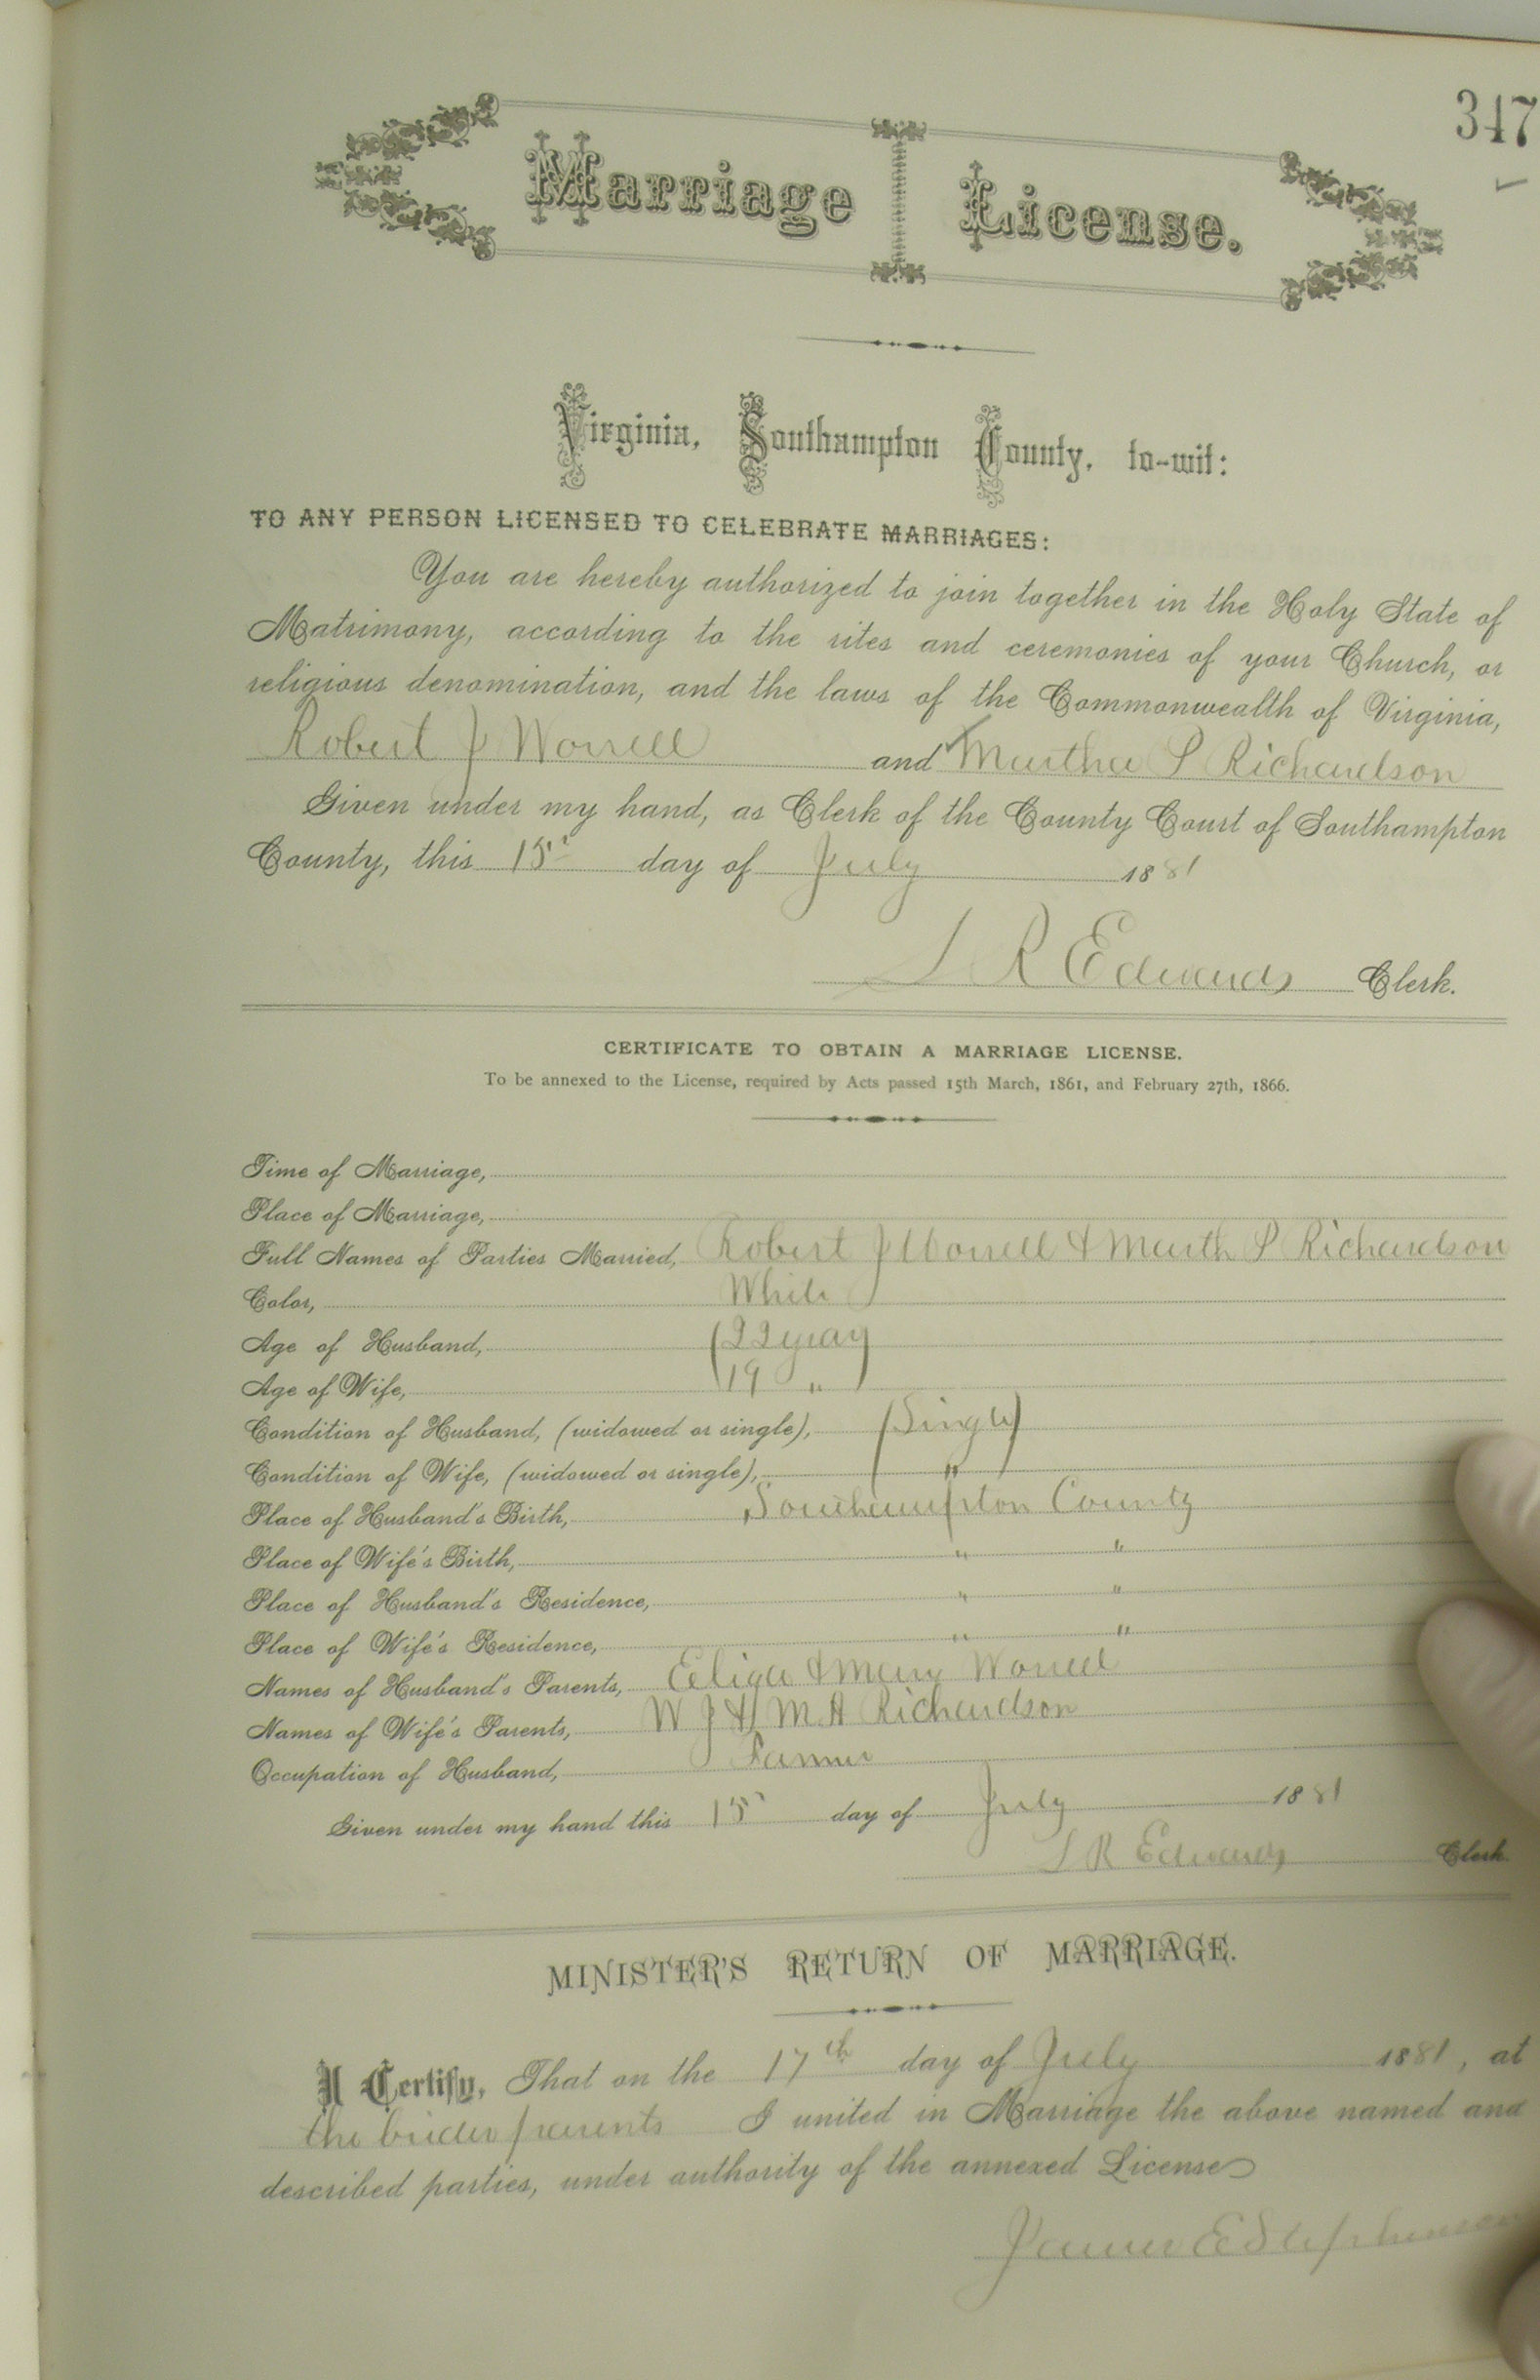 347
Marriage License.
Virginia, Southampton County, to-wit:
TO ANY PERSON LICENSED TO CELEBRATE MARRIAGES:
You are hereby authorized to join together in the Holy State of
Matrimony, according to the rites and ceremonies of your Church, or
religious denomination, and the laws of the Commonwealth of Virginia,
Robert J Worrell and Martha P Richardson
Given under my hand, as Clerk of the County Court of Southampton
County, this 15 day of July 1881
L R Edwards Clerk.
CERTIFICATE TO OBTAIN A MARRIAGE LICENSE.
To be annexed to the License, required by Acts passed 15th March, 1861, and February 27th, 1866.
Time of Marriage,
Place of Marriage,
Full Names of Parties Married, Robert J Worrell & Marth P Richardson
Color, White
Age of Husband, 22 years
Age of Wife, 19 "
Condition of Husband, (widowed or single), Single
Condition of Wife, (widowed or single), "
Place of Husband's Birth, Southampton County
Place of Wife's Birth, " "
Place of Husband's Residence, " "
Place of Wife's Residence, " "
Names of Husband's Parents, & Mary Worrell
Names of Wife's Parents, W J & M A Richardson
Occupation of Husband, Farmer
Given under my hand this 15 day of July 1881
L R Edwards Clerk.
MINISTER'S RETURN OF MARRIAGE.
I Certify, That on the 17th day of July 1881, at
the brides parents I united in Marriage the above named and
described parties, under authority of the annexed License
James E Stephenson